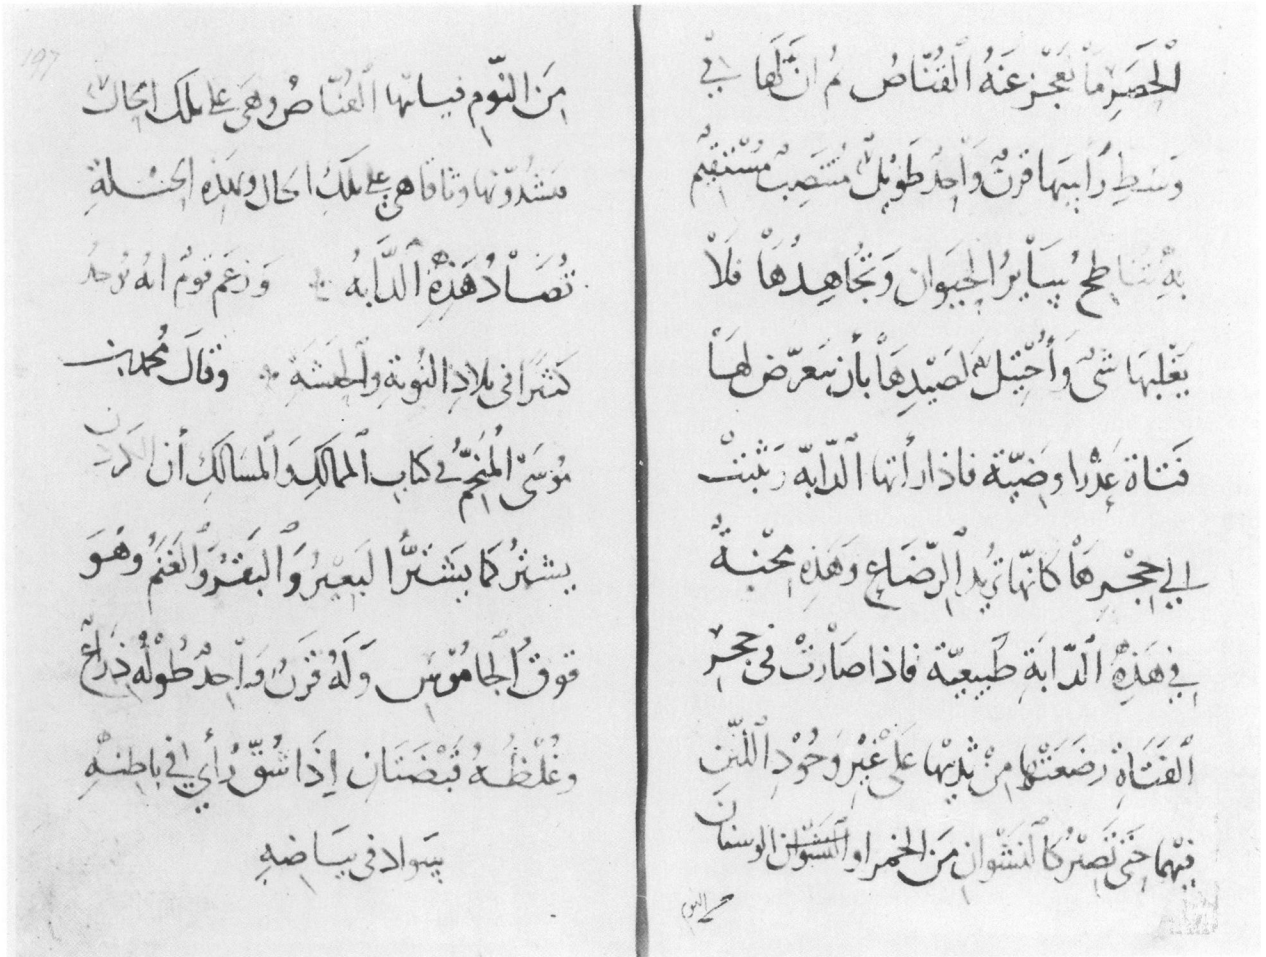 الْحَصَرِ مَا يَعْجَزُ عَنْهُ الْقُنَّاصُ ثم انَّ لَهَا في
وَسَطِ رَأسِهَا قَرْنٌ وَاْحِدٌ طَوِيلٌ مُنتَصِبٌ مُسْتَقِيمٌ
بِهِ تناطِحُ سَايرَ الْحَيَوَان وَتُجَاهِدُهَاْ فَلَاْ
يَغْلِبُهَا شىْءٌ وَأحْتِيل لصَيْدِهَاْ بأن يتَعرّض لهَاْ
فَتَاة عَذْرا وضيّة فاذا رأتها الدَّابّة وَثبتْ
الي حِجْرِهَاْ كَانّهَا تريد الرّضَاع وَهَذِهِ مَحَبّةٌ
في هَذِهِ الدَّابَةِ طَبِيعِيّة فاذا صَاْرَتْ في حِجرِ
الفَتَاةِ رَضَعَتْهَا مِنْ ثدْيِهَا عَلَى غَيْرِ وُجُوْدِ اللَّبَنِ
فيهَا حَتّى تَصِيْرُ كَالنَشْوَانِ مَنَ الخمر او النَشْوَان الوسنَان
من النوم
197
مِنَ النَّوْمِ فياتيها الْقُنّاصُ وهَى على تلكَ الحَال
فشدّونها وثاقا وهى على تلكَ الحال وبهذه الحِيْلَةِ
تُصَاْدُ هَذِهِ الدَّابةُ وَزعَم قومٌ انه يُوجَدُ
كثيرًا فى بلادِ النُوبَةِ والحبَشَةِ وقالَ مُحمد بن
مُوسَى الْمُنَجِّمُ في كتاب الْممالكِ وَالْمسَالكِ أن الكركدن
يشترُ كمَا يَشتَرُّ البَعِيْرُ وَالْبَقَرُ وَالْغَنَمُ وهُوَ
فوقَ الْجَامُوْسِ وَلَهُ قَرَنٌ وَاْحِدٌ طُوْلُهُ ذِرَاعٌ
وغُلْظُهُ قَبْضَتَانِ إِذَا شُقِّ رُأي في باطِنِهِ
سَواد فى بيَاضِهِ